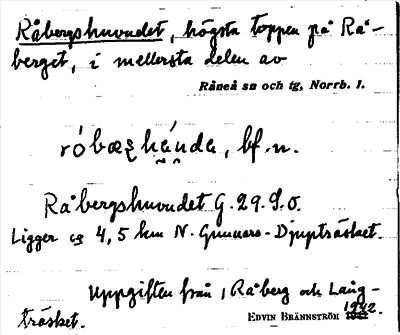 Råbergshuvudet, högsta toppen på Rå-
berget, i mellersta delen av
Råneå sn och tg, Norrb. l.
róbæʒ hándə, bf. n.
Råbergshuvudet G. 29. S.O.
Ligger ca 4,5 km N. Gunnars-Djupträsket.
Uppgiften från, Råberg och Lång-
träsket.
EDVIN BRÄNNSTRÖM 1942.